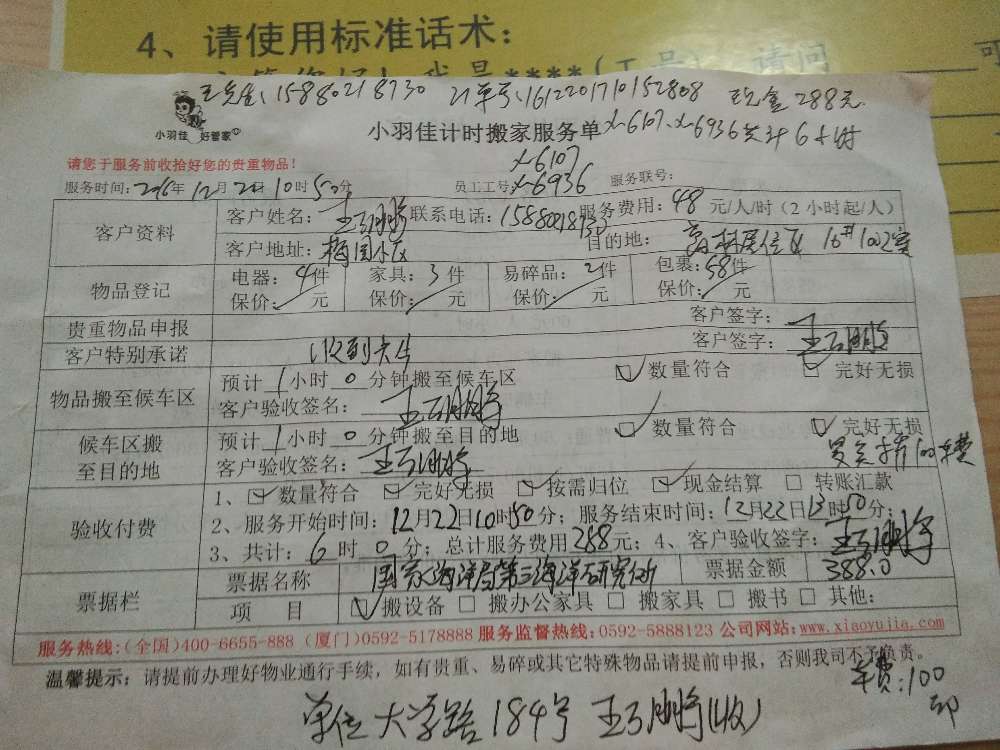 4、请使用标准话术:
王先生: 15880218730 订单号:1612201710152808 现金288元
小羽佳 好管家
小羽佳计时搬家服务单 x-6107、x-6936共计6小时
请您于服务前收拾好您的贵重物品!
x-6107
服务时间:2016年12月22日10时50分 员工工号:x-6936 服务联号:
客户资料
客户姓名: 联系电话: 服务费用:48元/人/时(2小时起/人)
客户地址:梅园小区 目的地: 居住区 16#1002室
物品登记
电器:4件 家具:3件 易碎品:2件 包裹:58件
保价: 元 保价: 元 保价: 元 保价: 元
贵重物品申报 客户签字:
客户特别承诺 客户签字:
物品搬至候车区
预计1小时0分钟搬至候车区 数量符合 完好无损
客户验收签名:
候车区搬至目的地
预计1小时0分钟搬至目的地 数量符合 完好无损
客户验收签名:
验收付费
1、数量符合 完好无损 按需归位 现金结算 转账汇款
2、服务开始时间:12月22日10时50分; 服务结束时间:12月22日13时50分;
3、共计:6时0分; 总计服务费用288元; 4、客户验收签字:
票据栏
票据名称 国家海洋局第三海洋研究所 票据金额 388.0
项 目 搬设备 搬办公家具 搬家具 搬书 其他:
服务热线:(全国)400-6655-888 (厦门)0592-5178888 服务监督热线:0592-5888123 公司网站:www.xiaoyujia.com
温馨提示: 请提前办理好物业通行手续,如有贵重、易碎或其它特殊物品请提前申报,否则我司不予负责。
车费:100
单位大学路184号 (收)